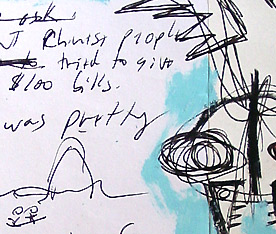 ask
J Chinese people
to tried to give
$100 bills.
was pretty